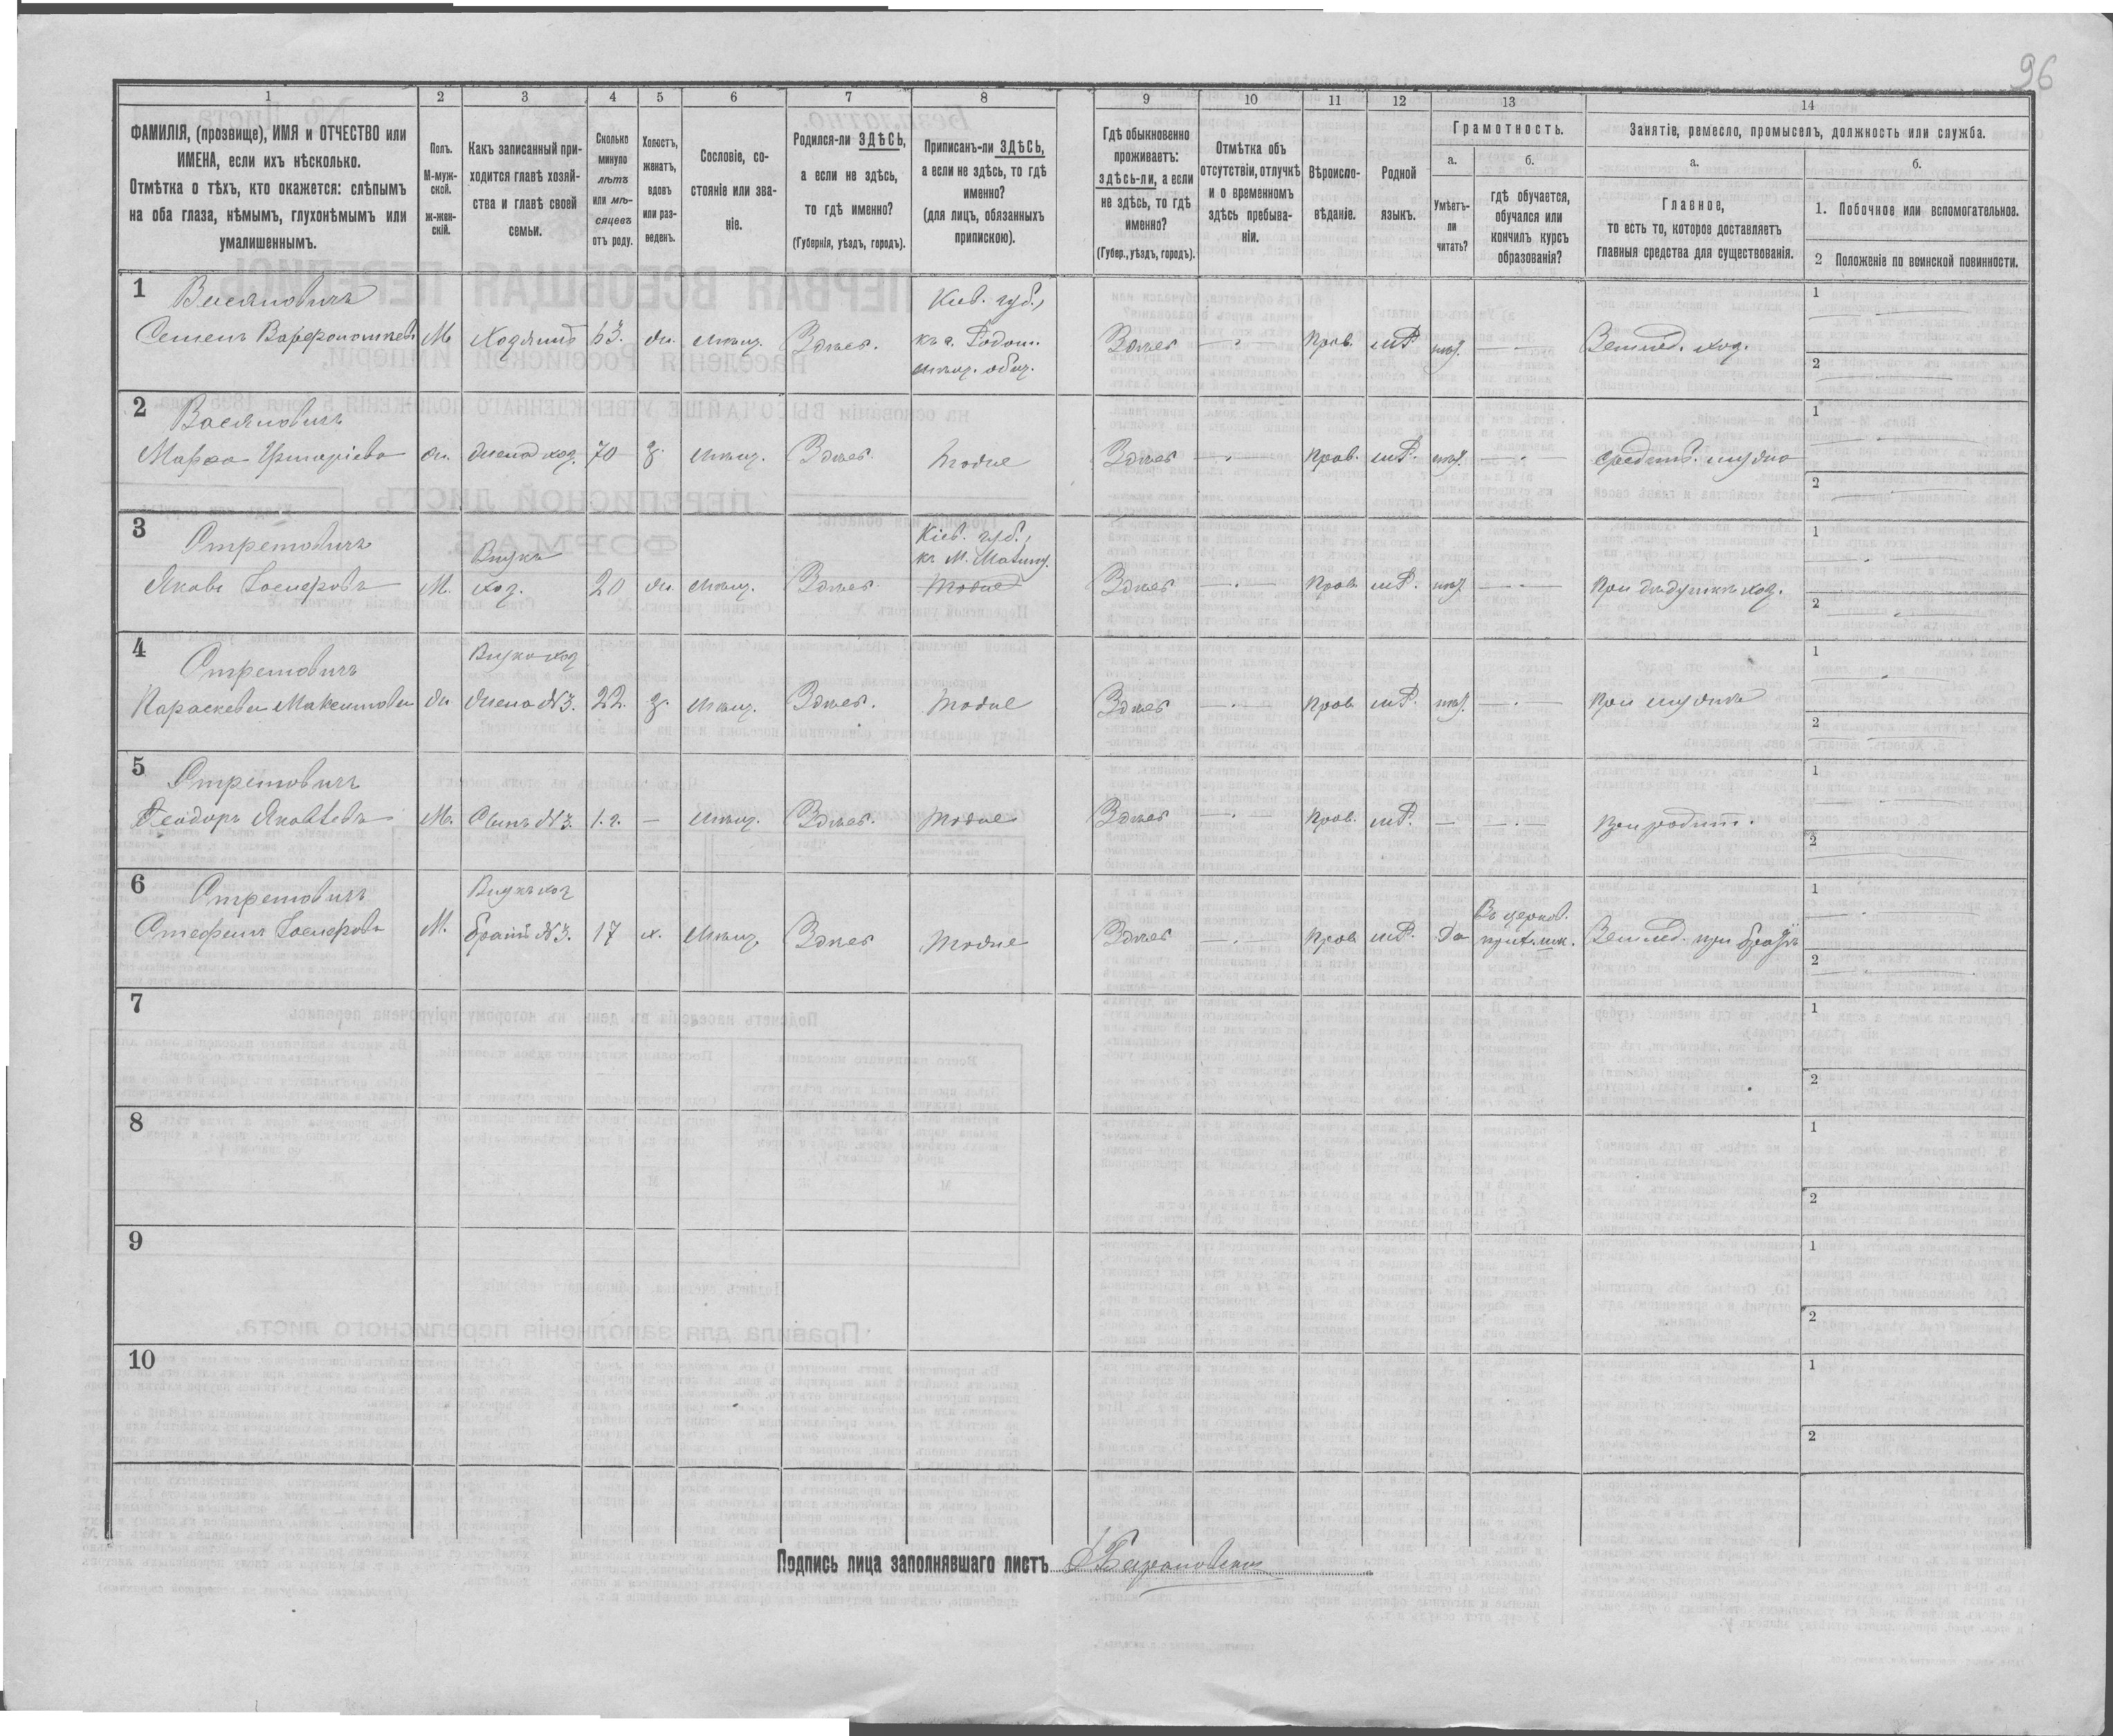 96
1 2 3 4 5 6 7 8 9 10 11 12 13 14
ФАМИЛІЯ, (прозвище), ИМЯ и ОТЧЕСТВО или
ИМЕНА, если ихъ нѣсколько.
Отмѣтка о тѣхъ, кто окажется: слѣпымъ
на оба глаза, нѣмымъ, глухонѣмымъ или
умалишеннымъ.
Полъ.
М-муж-
ской.
ж-жен-
скій.
Какъ записанный при-
ходится главѣ хозяй-
ства и главѣ своей
семьи.
Сколько
минуло
лѣтъ
или мѣ-
сяцевъ
отъ роду.
Холостъ,
женатъ,
вдовъ
или раз-
веденъ.
Сословіе, со-
стояніе или зва-
ніе.
Родился-ли ЗДѢСЬ,
а если не здѣсь,
то гдѣ именно?
(Губернія, уѣздъ, городъ).
Приписанъ-ли ЗДѢСЬ,
а если не здѣсь, то гдѣ
именно?
(для лицъ, обязанныхъ
припискою).
Гдѣ обыкновенно
проживаетъ:
здѣсь-ли, а если
не здѣсь, то гдѣ
именно?
(Губер., уѣздъ, городъ).
Отмѣтка объ
отсутствіи, отлучкѣ
и о временномъ
здѣсь пребыва-
ніи.
Вѣроиспо-
вѣданіе.
Родной
языкъ.
Грамотность.
а.
Умѣетъ-
ли
читать?
б.
гдѣ обучается,
обучался или
кончилъ курсъ
образованія?
Занятіе, ремесло, промыселъ, должность или служба.
а.
Главное,
то есть то, которое доставляетъ
главныя средства для существованія.
б.
1. Побочное или вспомогательное.
2 Положеніе по воинской повинности.
1
Кіев. губ.,
Семенъ М Хозяинъ 63. ж. мѣщ. Здѣсь. къ г. Радом. Здѣсь Прав. мР
мѣщ. общ. Землед. хоз.
1
2
2 Васяновичъ
Марѳа ж. жена хоз. 70 з. мѣщ. Здѣсь. тоже Здѣсь прав. мР.
1
2
3 Кіев. губ.,
Внукъ къ М.
Яковъ Іосифовъ М. хоз. 20 ж. мѣщ. Здѣсь тоже Здѣсь прав. мР. при дѣдушкѣ хоз.
1
2
4 Внука хоз
Параскева Максимова ж жена №3. 22. з. мѣщ. Здѣсь. тоже Здѣсь прав мР. при мужѣ
1
2
5
Ѳеодоръ Яковлевъ М. Сынъ №3. 1. г. — мѣщ. Здѣсь. тоже Здѣсь прав. мР. — при родит.
1
2
6 Внукъ хоз Въ церков.
Стефанъ Іосифовъ М. братъ №3. 17 х. мѣщ. Здѣсь тоже Здѣсь прав мР. Да прих. шк. Землед. при братѣ
1
2
7
1
2
8
1
2
9
1
2
10
1
2
Подпись лица заполнявшаго листъ